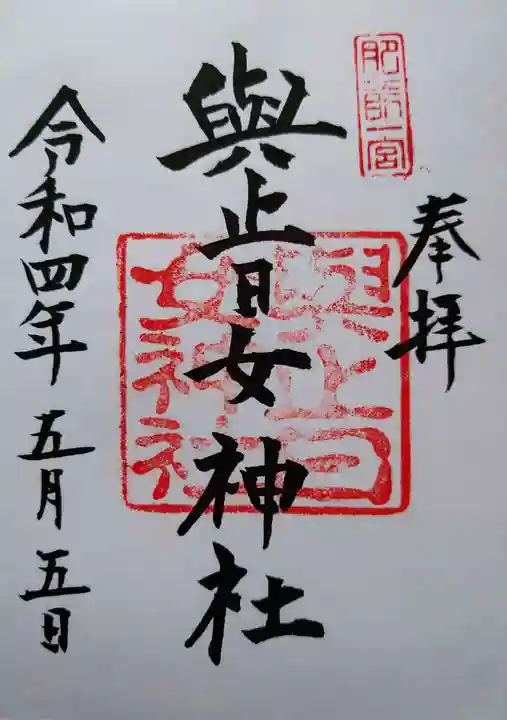 肥前一宮
奉拝
與止日女神社
與止日女神社
令和四年五月五日